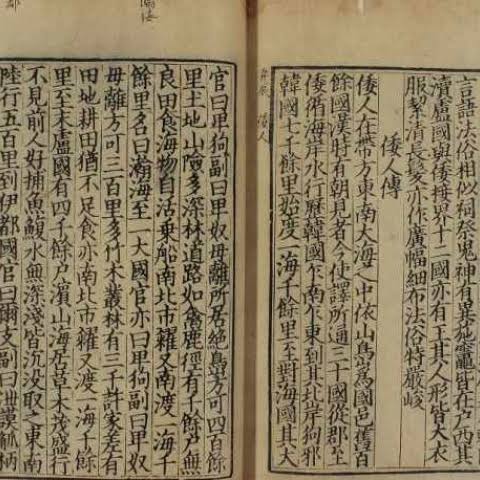 言語法俗相似祠祭鬼神有異施竈皆在戶西其
瀆盧國與倭接界十二國亦有王其人形皆大衣
服絜清長髮亦作廣幅細布法俗特嚴峻
倭人傳
倭人在帶方東南大海之中依山㠀為國邑舊百
餘國漢時有朝見者今使譯所通三十國從郡至
倭循海岸水行歷韓國乍南乍東到其北岸狗邪
韓國七千餘里始度一海千餘里至對海國其大
弁辰 倭人
官曰卑狗副曰卑奴毋離所居絕㠀方可四百餘
里土地山險多深林道路如禽鹿徑有千餘戶無
良田食海物自活乗船南北市糴又南渡一海千
餘里名曰瀚海至一大國官亦曰卑狗副曰卑奴
毋離方可三百里多竹木叢林有三千許家差有
田地耕田猶不足食亦南北市糴又渡一海千餘
里至末盧國有四千餘戶濵山海居草木茂盛行
不見前人好捕魚鰒水無深淺皆沉沒取之東南
陸行五百里到伊都國官曰爾支副曰泄謨觚柄